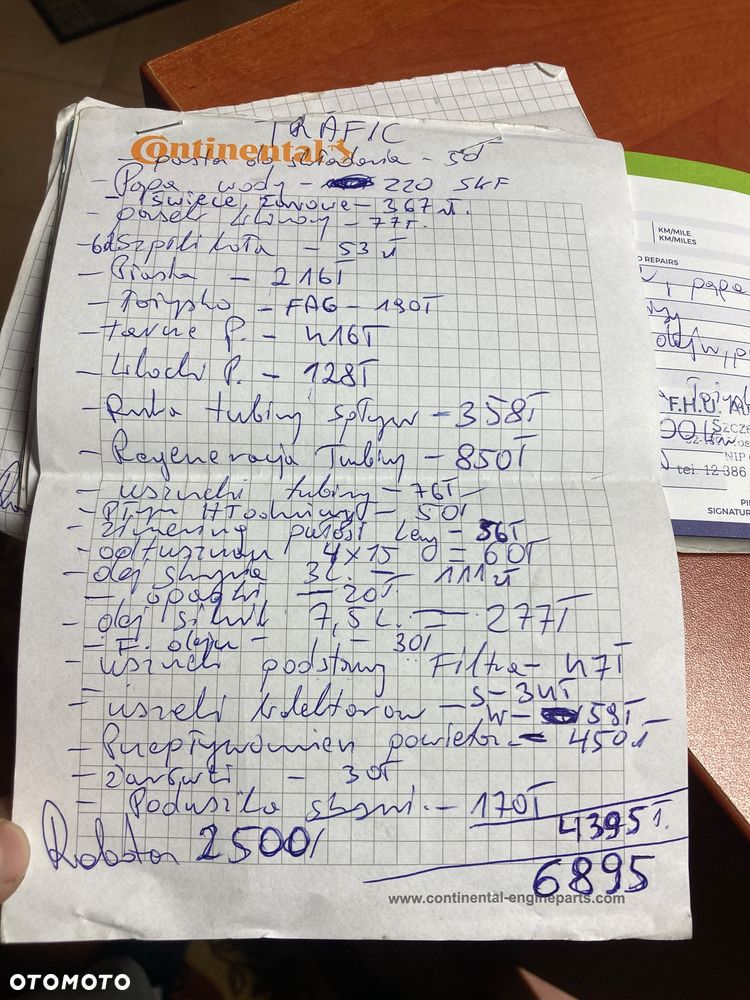 TRAFIC
Continental
- pasta do składania - 5zł
- Popa wody - 220 SKF
- świece żarowe - 367 zł.
- pasek klinowy - 77zł.
- 6x Szpilki koła - 53 zł
- Piasta - 216zł
- Łożysko - FAG - 190zł
- tarcze P. - 416zł
- klocki P. - 128zł
- Rurka turbiny spływ - 358zł
- Regeneracja Turbiny - 850zł
- uszczelki turbiny - 76zł
- Płyn Hłodniczy - 50zł
- zimering półoś Lewy - 36zł
- odtłuszczacz 4x15 = 60zł
- olej skrynia 3L. - 111zł
- opaski - 20zł.
- olej silnik 7,5L. = 277zł
- F. oleju - 30zł
- uszczelki podstawy Filtra - 47zł
- uszczelki kolektorów S - 34zł
W - 158zł
- Przepływomierz powietrza - 450zł
- żarówki - 30zł
- Poduszka skrzyni. - 170zł
4395zł.
Robota 2500
6895
www.continental-engineparts.com
KM/MILE
KM/MILES
REPAIRS
popa
F.H.U.
NIP
tel. 12 386
SIGNATUR
OTOMOTO